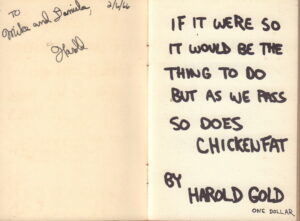 TO
2/6/66
Mike and Daniela,
Harold
IF IT WERE SO
IT WOULD BE THE
THING TO DO
BUT AS WE PASS
SO DOES
CHICKENFAT
BY
HAROLD GOLD
ONE DOLLAR